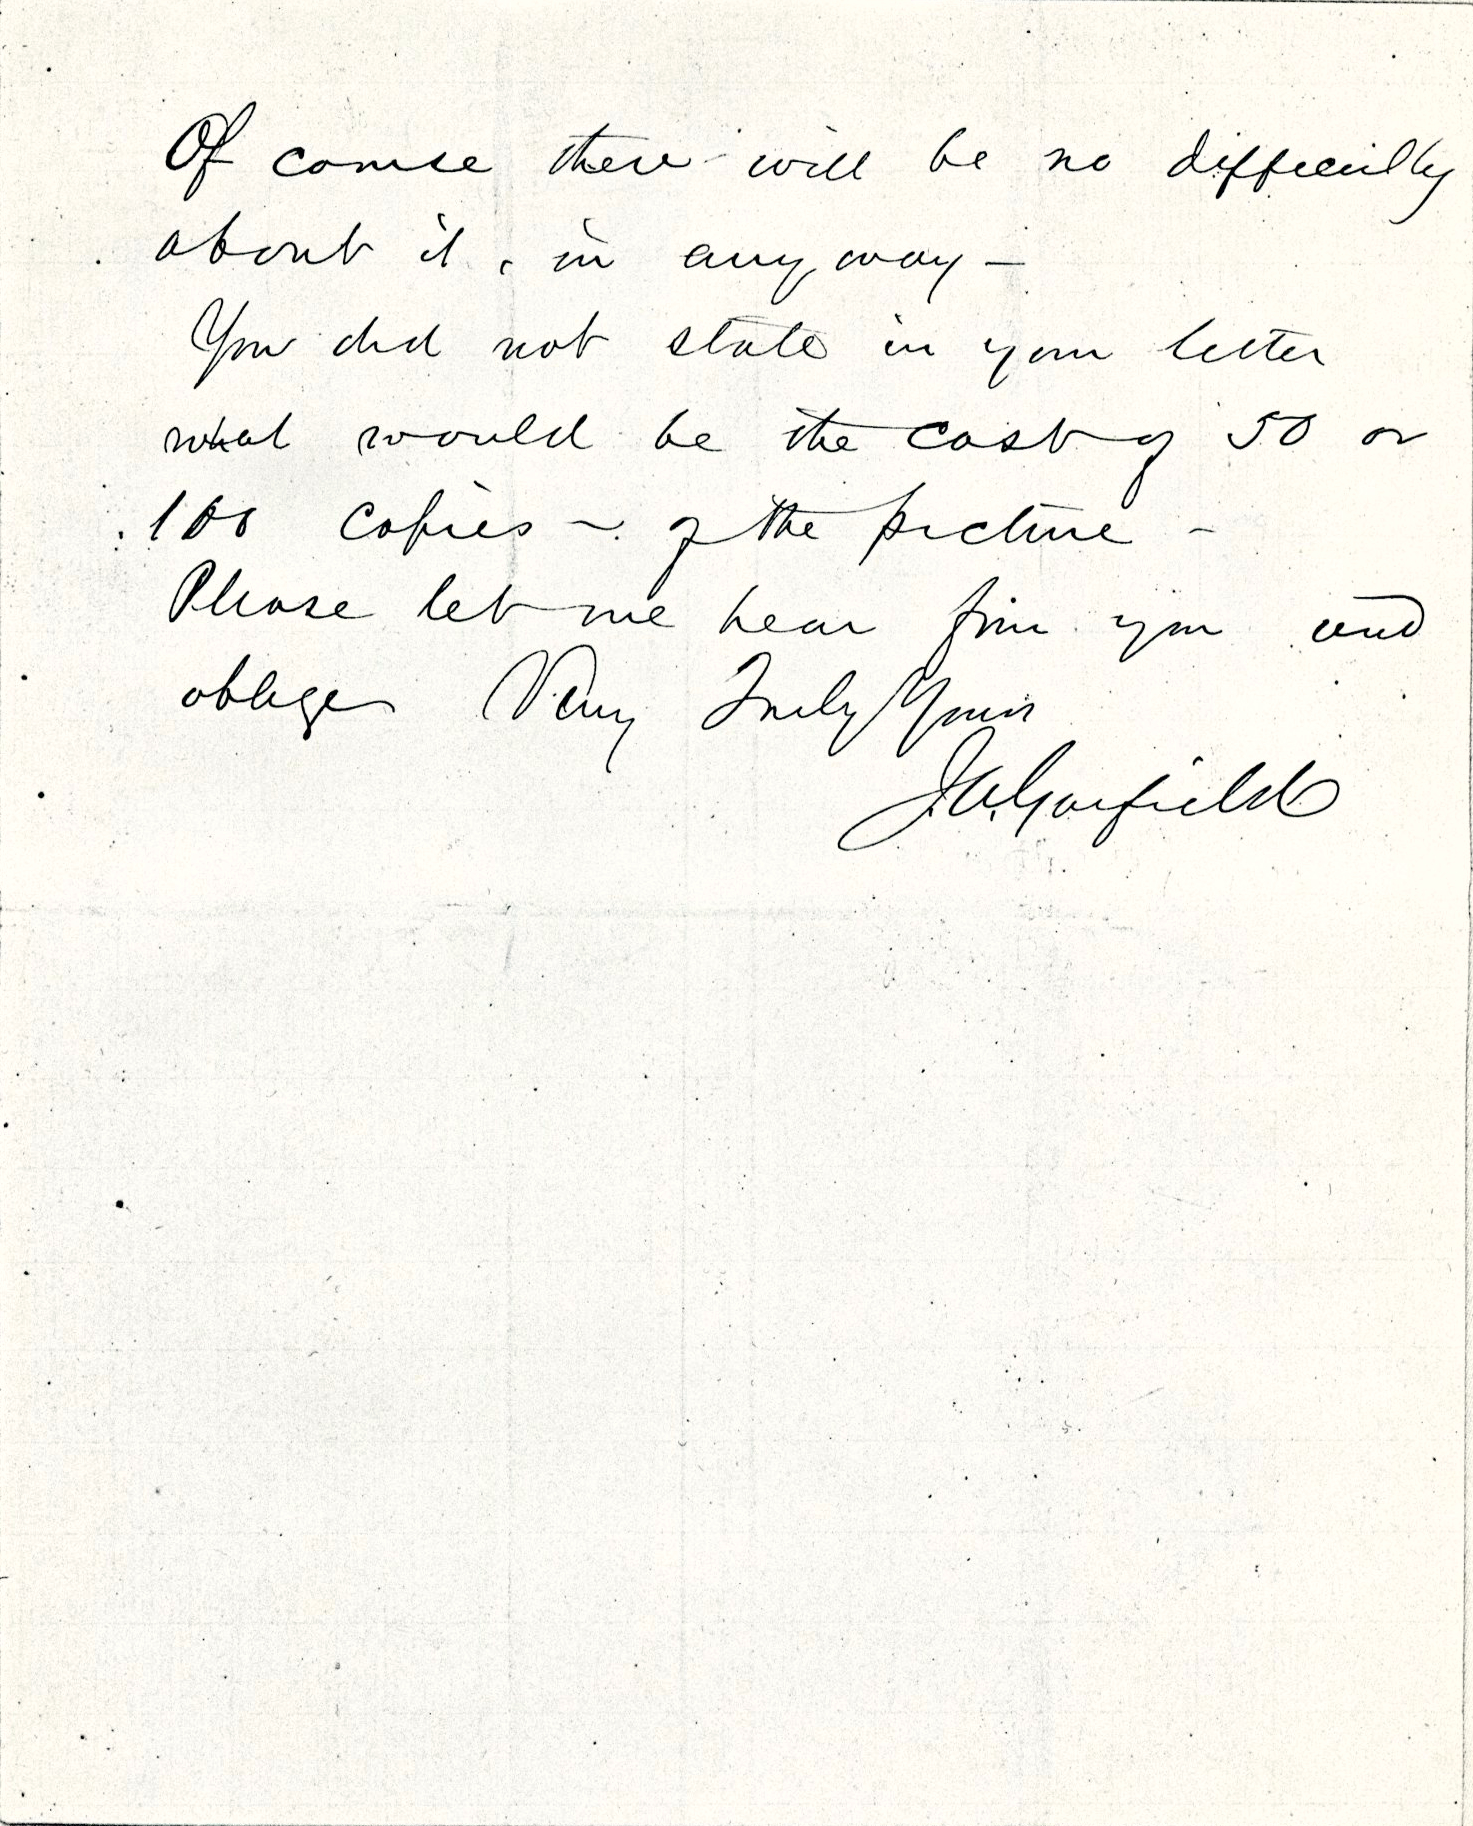 Of course there will be no difficulty
about it, in any way –
You did not state in your letter
what would be the cost of 50 or
100 copies – of the picture –
Please let me hear from you and
oblige Very Truly Yours
J.A. Garfield